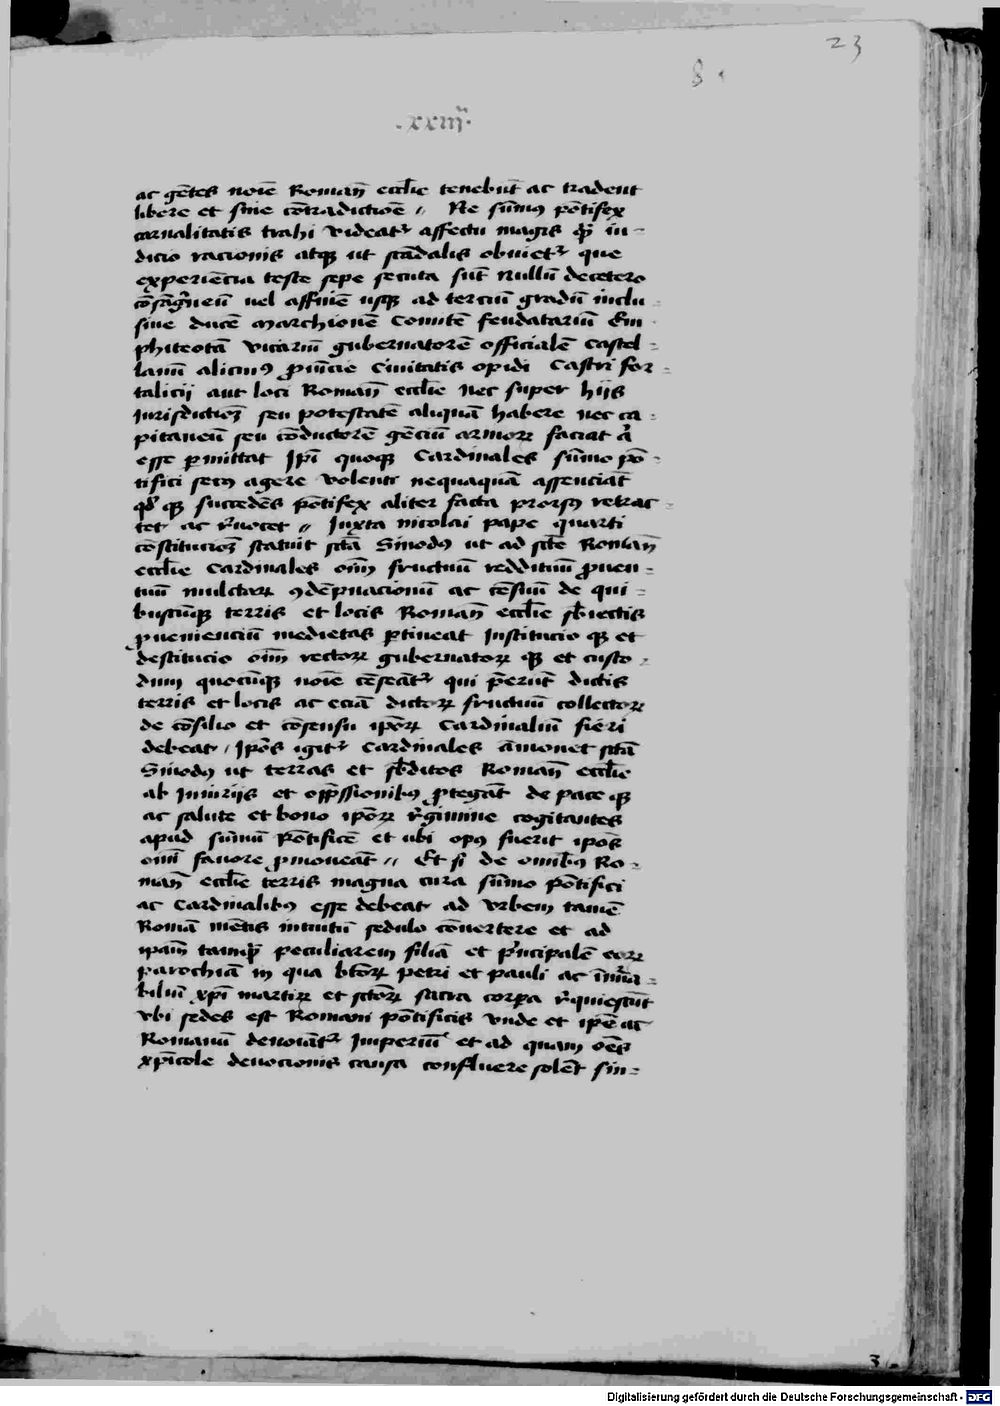 23
8.
.xxiij.
ac gētes noīe Romañ eccłie tenebūt ac tradent
libere et sine cōtradictiōe // Ne sūmꝰ pōtifex
carnalitatis trahi videatᷣ affectu magis qꝫ̄ iu-
dicio racionis atqꝫ ut scādalis obuietᷣ que
experiēcia teste sepe secuta sūt Nullū decetero
cōsāgͥneū uel affinē usqꝫ ad terciū gradū inclu-
siue ducē Marchionē Comitē feudatariū Em-
phiteotā vicariū gubernatorē officialē castel-
lanū alicuiꝰ ꝓuīcie Ciuitatis opidi Castri for-
talicij aut loci Romañ eccłie Nec super hijs
Jurisdictioꝫ seu potestatē aliquā habere nec ca-
pitaneū seu cōductorē gēciū armoꝝ faciat aͭ
esse ꝑmittat Jpī quoqꝫ Cardinales sūmo pō-
tifici secꝰ agere volenti nequaquā assenciāt
qđ qꝫ succedēs pōtifex aliter facta prorsꝰ retrac-
tet ac rͤuocet // Juxta nicolai pape quarti
cōstitucioꝫ statuit sctā Sinodꝰ ut ad scte Romañ
eccłie Cardinales oīm fructuū reddituū ꝓuen-
tuū mulctaꝝ ꝯdēpnacionū ac cēsuū de qui-
buscūqꝫ terris et locis Romañ eccłie sƀiectis
ꝓuenienciū medietas ꝑtineat Institucio qꝫ et
destitucio oīm rectoꝝ gubernatoꝝ qꝫ et custo-
dum quocūqꝫ noīe cēseātᷣ qui p̄erūt dictis
terris et locis ac eciā dictoꝝ fructuū collectoꝝ
de cōsilio et cōsensu ipōꝝ Cardinaliū fieri
debeat / Jpōs igitᷣ Cardinales āmonet sctā
Sinodꝰ ut terras et sƀditos Romañ eccłie
ab Iniurijs et opp̄ssionibꝰ ꝓtegāt de pace qꝫ
ac salute et bono ipōꝝ rͤgimine cogitantes
apud sūmū Pōtificē et ubi opꝰ fuerit ipōs
omī fauore ꝓmoueāt // Et si de omibꝰ Ro-
mañ eccłie terris magna cura sūmo pōtifici
ac Cardinalibꝰ esse debeat ad vrbem tamē
Romā mētis intuitū sedulo cōuertere et ad
ipām tamqꝫ̄ peculiarem filiā et pͥncipalē eoꝝ
parochiā in qua btōꝝ petri et pauli ac īnūa-
biliū xpī martiꝝ et sctōꝝ sacra corꝑa rͤquiescūt
vbi sedes est Romani pōtificis vnde et ipē ac
Romanū denoīatᷣ Imperiū et ad quam oēs
xpīcole deuocionis causa confluere solēt sin-
3
Digitalisierung gefördert durch die Deutsche Forschungsgemeinschaft - DFG